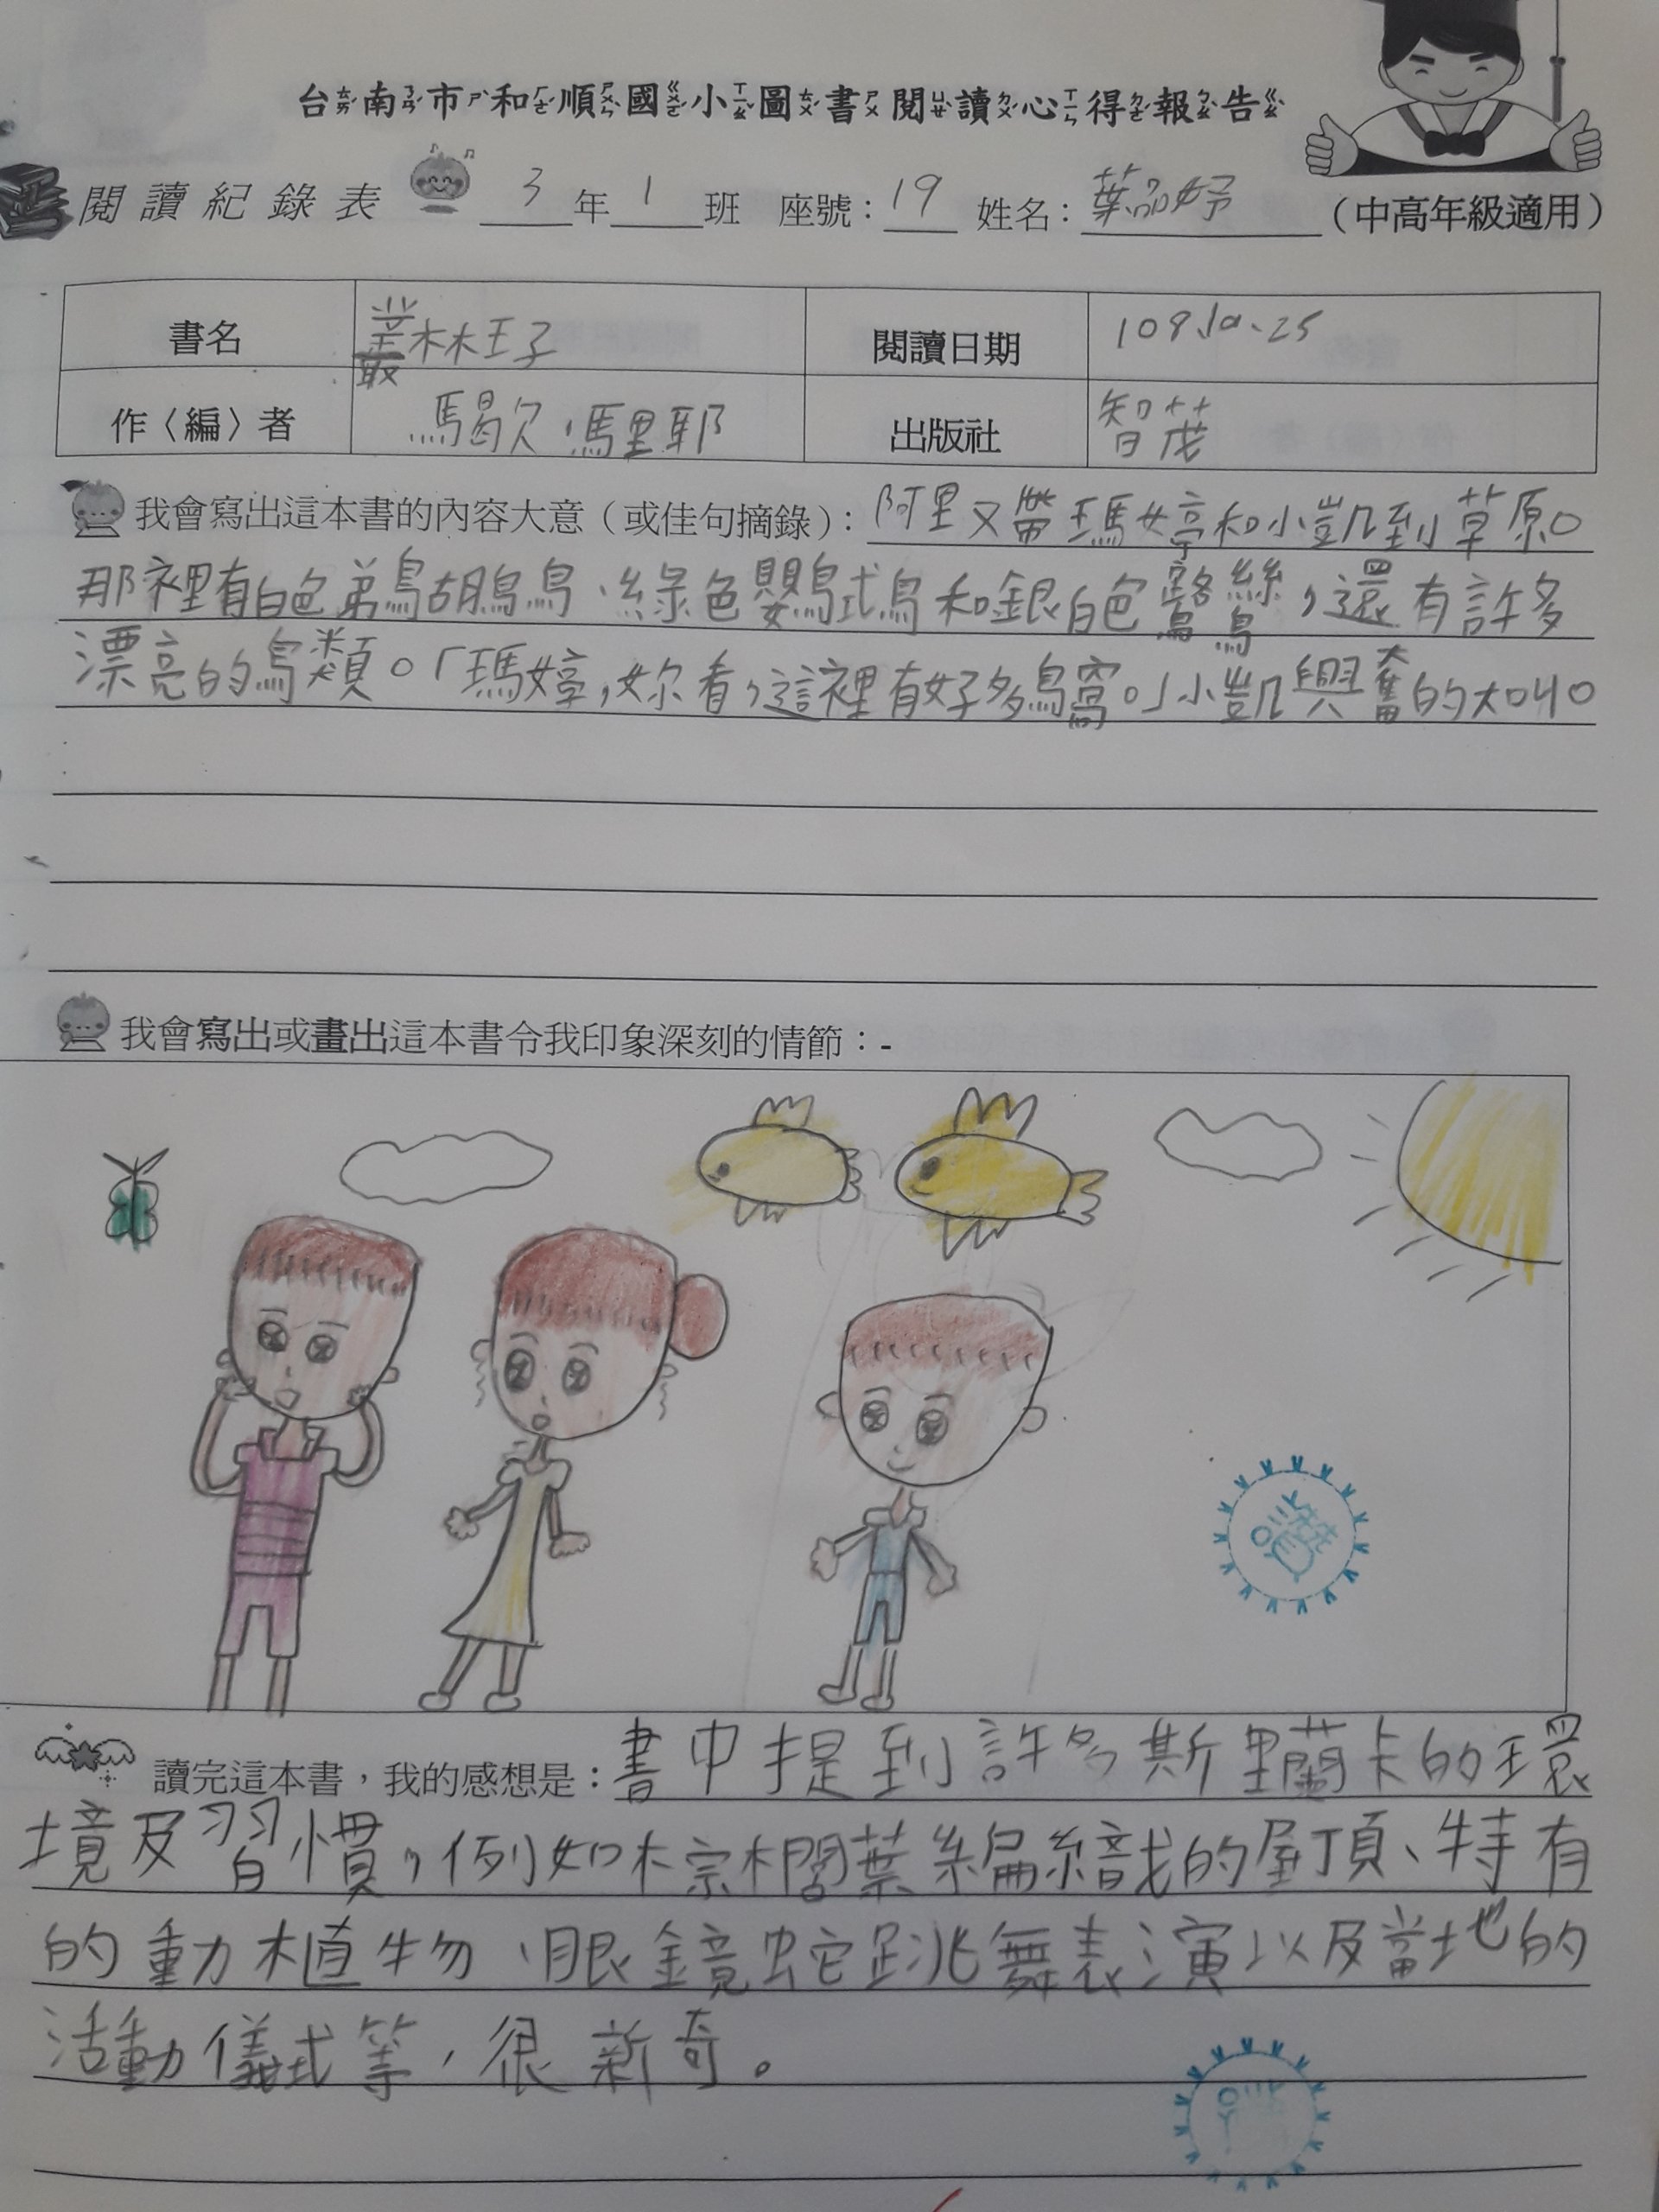 台南市和順國小圖書閱讀心得報告
閱讀紀錄表 3年1班 座號：19 姓名：葉品妤（中高年級適用）
書名 叢林王子 閱讀日期 109.10.25
作〈編〉者 馬歇．馬里耶 出版社 智茂
我會寫出這本書的內容大意（或佳句摘錄）：阿里又帶瑪婷和小凱到草原。
那裡有白色鵜鶘鳥、綠色鸚鵡鳥和銀白色鷺鷥，還有許多
漂亮的鳥類。「瑪婷，妳看，這裡有好多鳥窩。」小凱興奮的大叫。
我會寫出或畫出這本書令我印象深刻的情節：-
讚
讀完這本書，我的感想是：書中提到許多斯里蘭卡的環
境及習慣，例如棕櫚葉編織的屋頂、特有
的動植物、眼鏡蛇跳舞表演以及當地的
活動儀式等，很新奇。